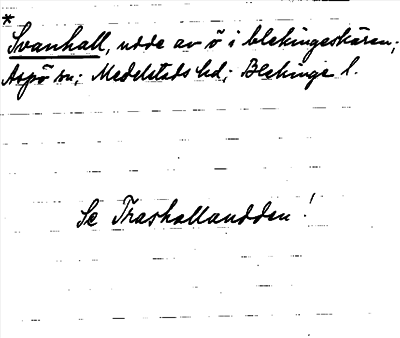 *
Svanhall, udde av ö i blekingeskären;
Aspö sn; Medelstads hd; Blekinge l.
Se Trashallaudden!